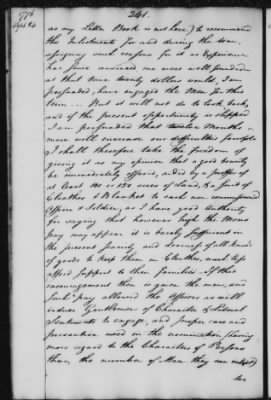 1776
Sept 24
241.
as my Letter Book is not here) I recommend
the Inlistments for and during the War.
assigning such reasons for it as Experience
has since convinced me were well founded
at that time twenty dollars would, I am
perswaded, have engaged the Men for this
term. But it will not do to look back,
and if the present opportunity is slipped
I am perswaded that twelve months
more will increase our difficulties fourfold
I shall therefore take the freedom of
giving it as my opinion that a good bounty
be immediately offered, aided by a proffer of
at least 100 or 150 acres of Land, & a Suit of
Cloathes & Blanket to each non commissioned
Officer & Soldier, as I have good Authority
for saying that however high the Mens
pay may appear it is barely sufficient in
the present scarcity and dearness of all kinds
of goods to keep them in Cloathes, much less
afford support to their families. If this
encouragement then is given the men, and
such pay allowed the Officers as will
induce Gentlemen of Character & Liberal
Sentiments to engage, and proper care and
precaution used in the nomination (having
more regard to the Characters of Persons
than the number of Men they can